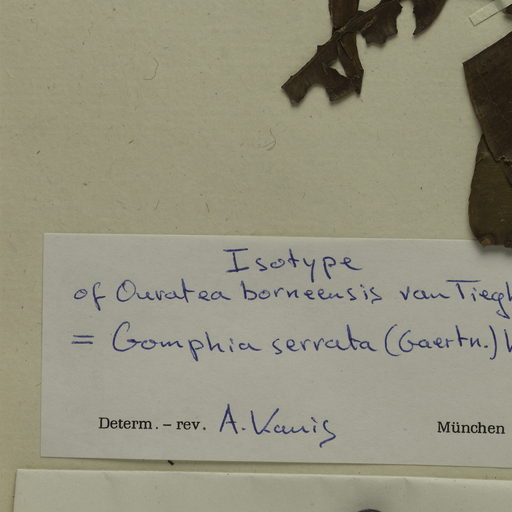 Isotype
of Ouratea borneensis van Tiegh
= Gomphia serrata (Gaertn.)
Determ. – rev. A. Kanis München